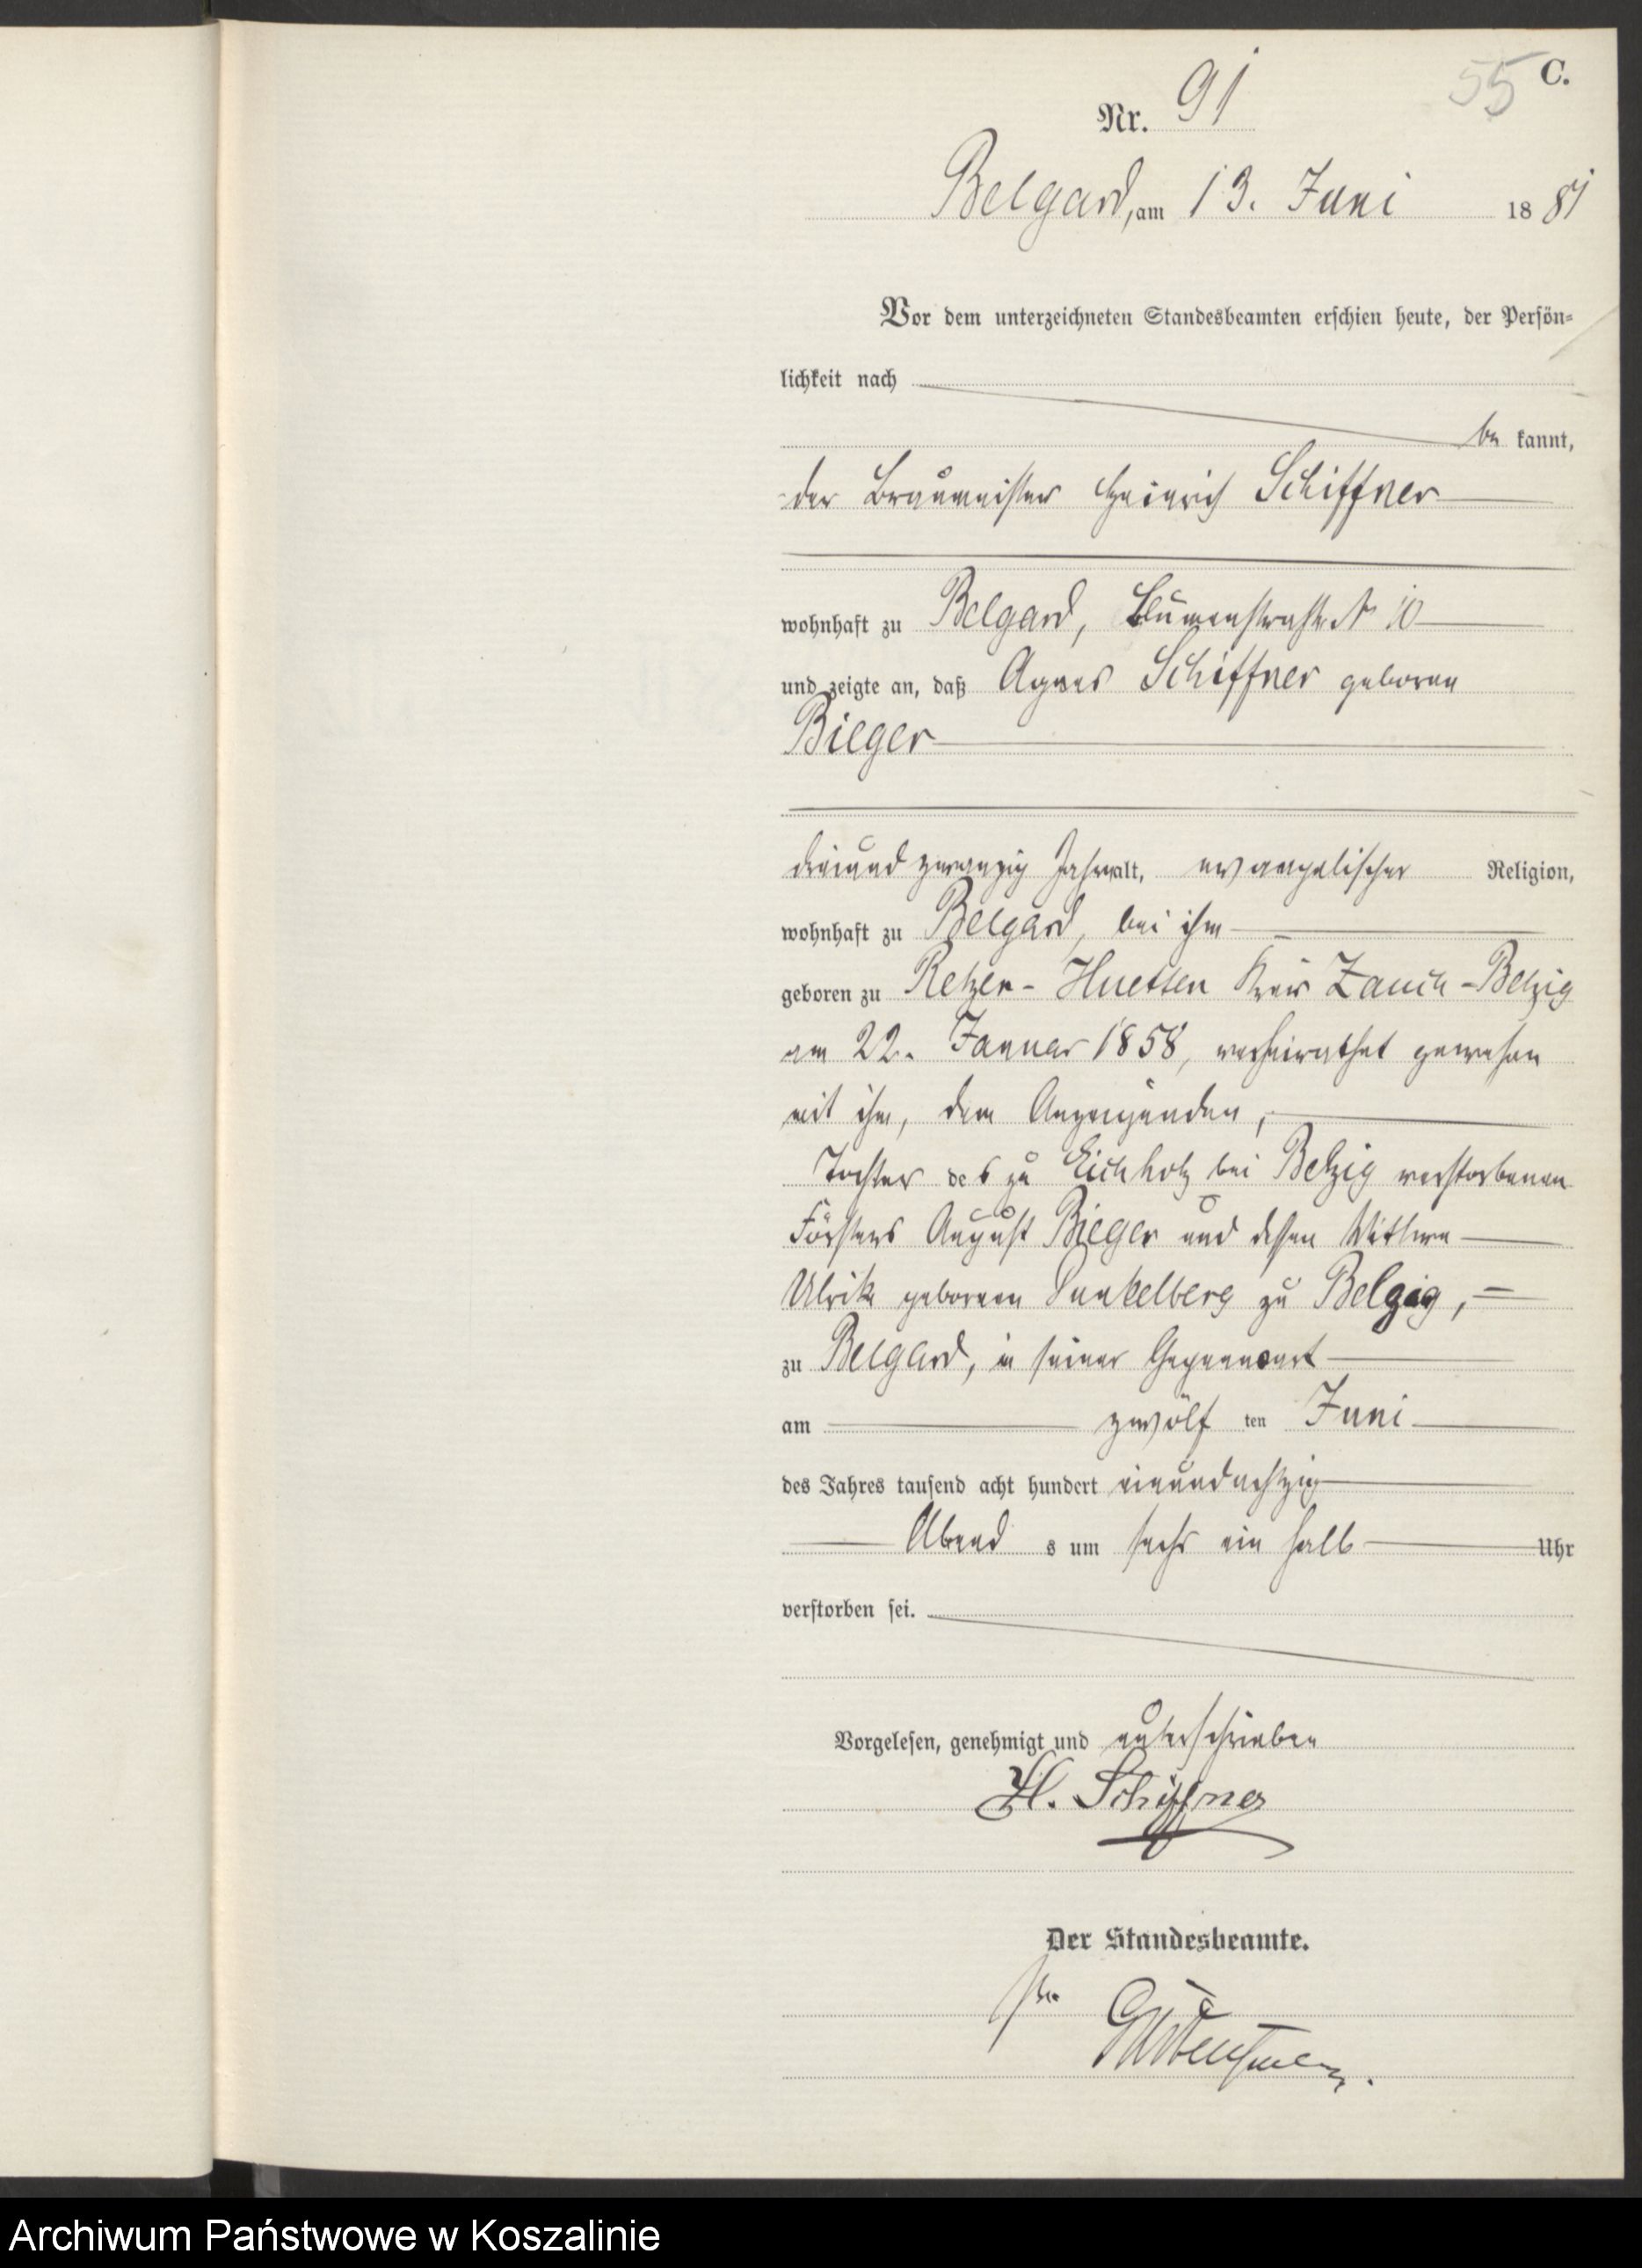 55 C.
Nr. 91
Belgard, am 13. Juni 1881
Vor dem unterzeichneten Standesbeamten erschien heute, der Persön-
lichkeit nach
be kannt,
der Braumeister Heinrich Schiffner
wohnhaft zu Belgard, Blumenstraße № 10
und zeigte an, daß Agnes Schiffner geboren
Bieger
dreiund zwanzig Jahre alt, evangelischer Religion,
wohnhaft zu Belgard, bei ihm
geboren zu Retzer-Huetten Kreis Zauch-Belzig
am 22. Januar 1858, verheirathet gewesen
mit ihm, dem Anzeigenden,
Tochter des zu Eichholz bei Belzig verstorbenen
Försters August Bieger und dessen Wittwe
Ulrike geborenen Dunkelberg zu Belzig,
zu Belgard, in seiner Gegenwart
am zwölf ten Juni
des Jahres tausend acht hundert einundachtzig
Abend s um sechs ein halb Uhr
verstorben sei.
Vorgelesen, genehmigt und unterschrieben
H. Schiffner
Der Standesbeamte.
Archiwum Państwowe w Koszalinie